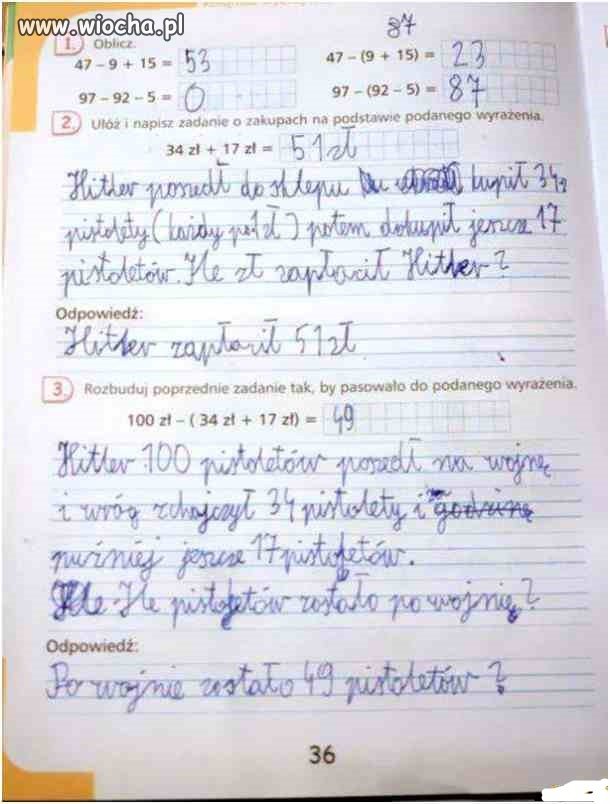 www.wiocha.pl
87
1. Oblicz.
47 – 9 + 15 = 53 47 – (9 + 15) = 23
97 – 92 – 5 = 0 97 – (92 – 5) = 87
2. Ułóż i napisz zadanie o zakupach na podstawie podanego wyrażenia.
34 zł + 17 zł = 51 zł
Hitler poszedł do sklepu kupił 34
pistolety (każdy po 1 zł) potem dokupił jeszcze 17
pistoletów. Ile zł zapłacił Hitler?
Odpowiedź:
Hitler zapłacił 51 zł
3. Rozbuduj poprzednie zadanie tak, by pasowało do podanego wyrażenia.
100 zł – (34 zł + 17 zł) = 49
Hitler 100 pistoletów poszedł na wojnę
i wróg zchajczył 34 pistolety i godzinę
puźniej jeszcze 17 pistoletów.
Ile pistoletów zostało po wojnię?
Odpowiedź:
Po wojnie zostało 49 pistoletów?
36